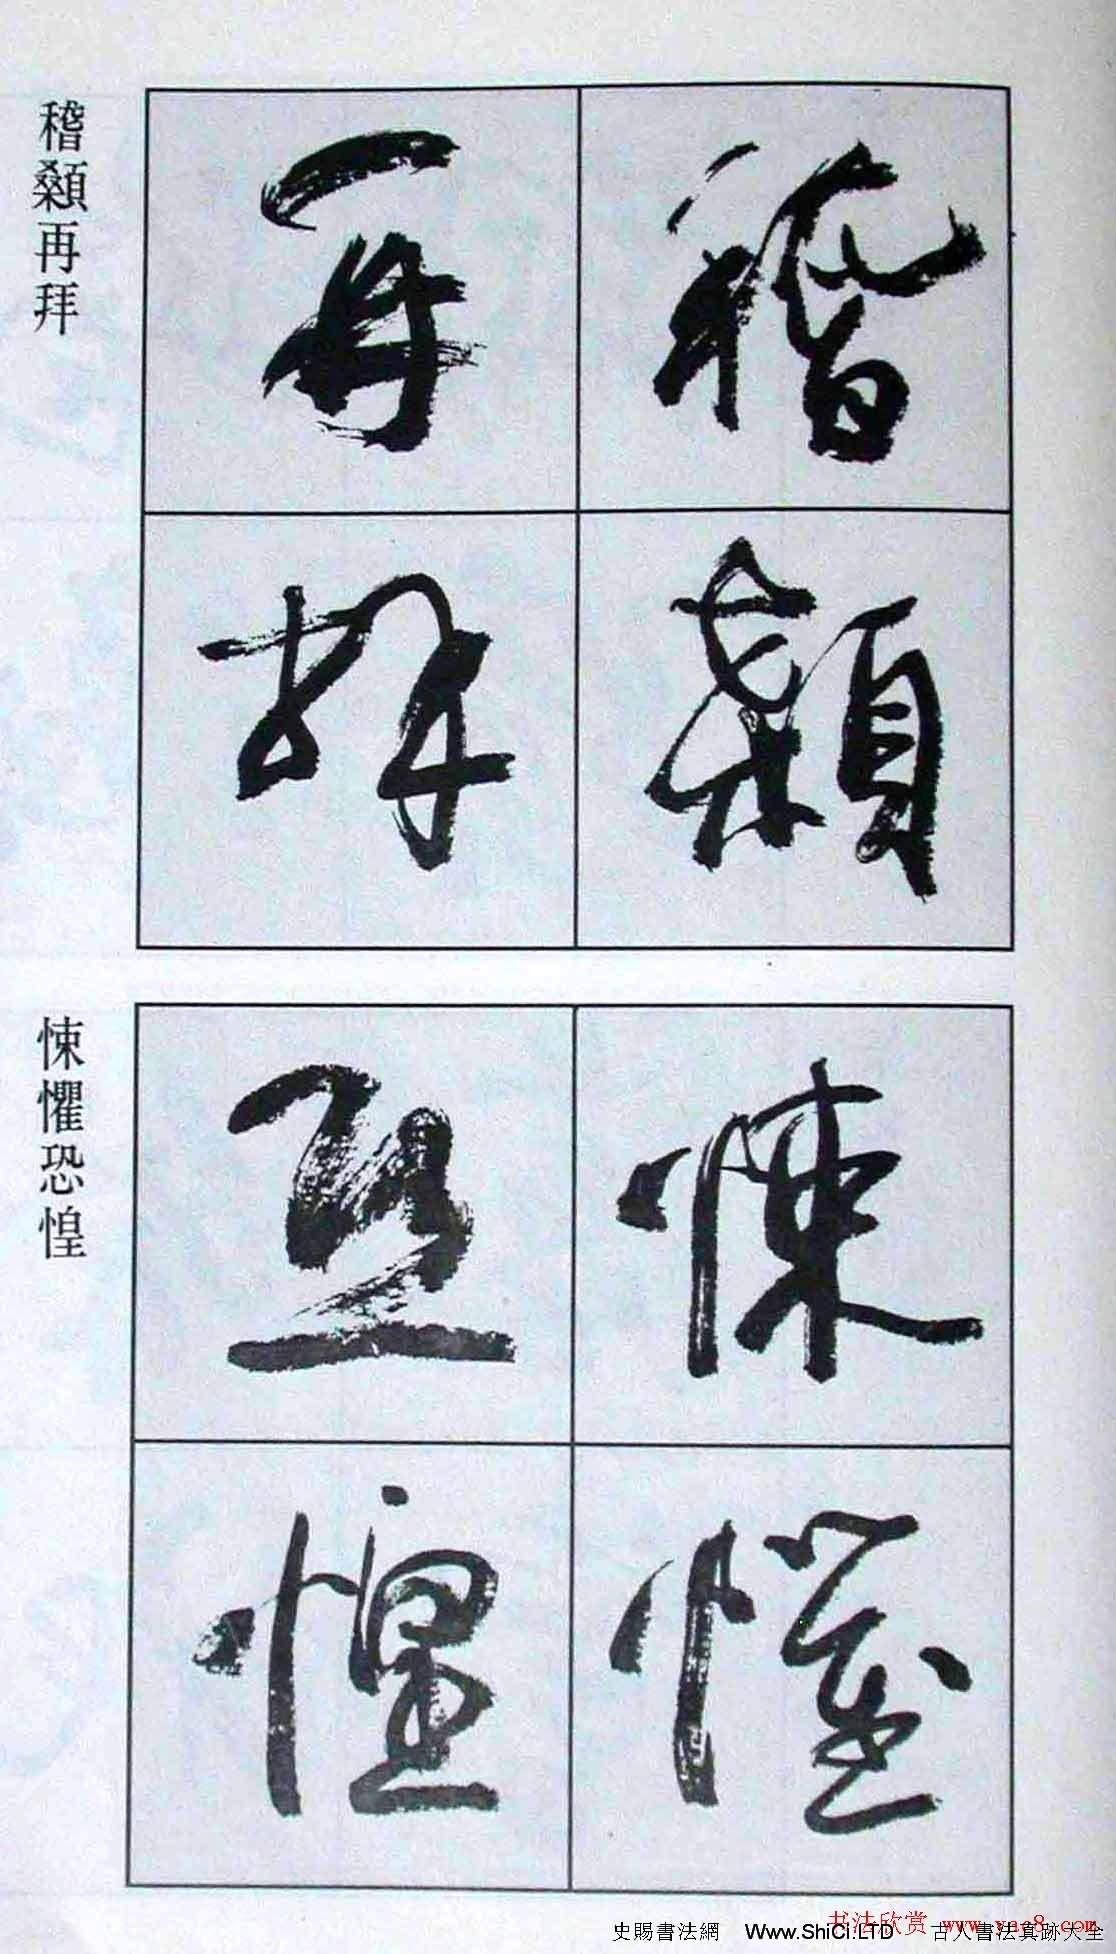 稽顙再拜
稽顙
再拜
悚懼恐惶
悚懼
恐惶
书法欣赏 www.yac8.com
史賜書法網 Www.ShiCi.LTD 古人書法真跡大全